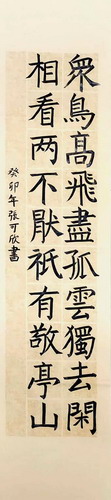 衆鳥髙飛盡孤雲獨去閑
相看两不厭祇有敬亭山
癸卯年張可欣書